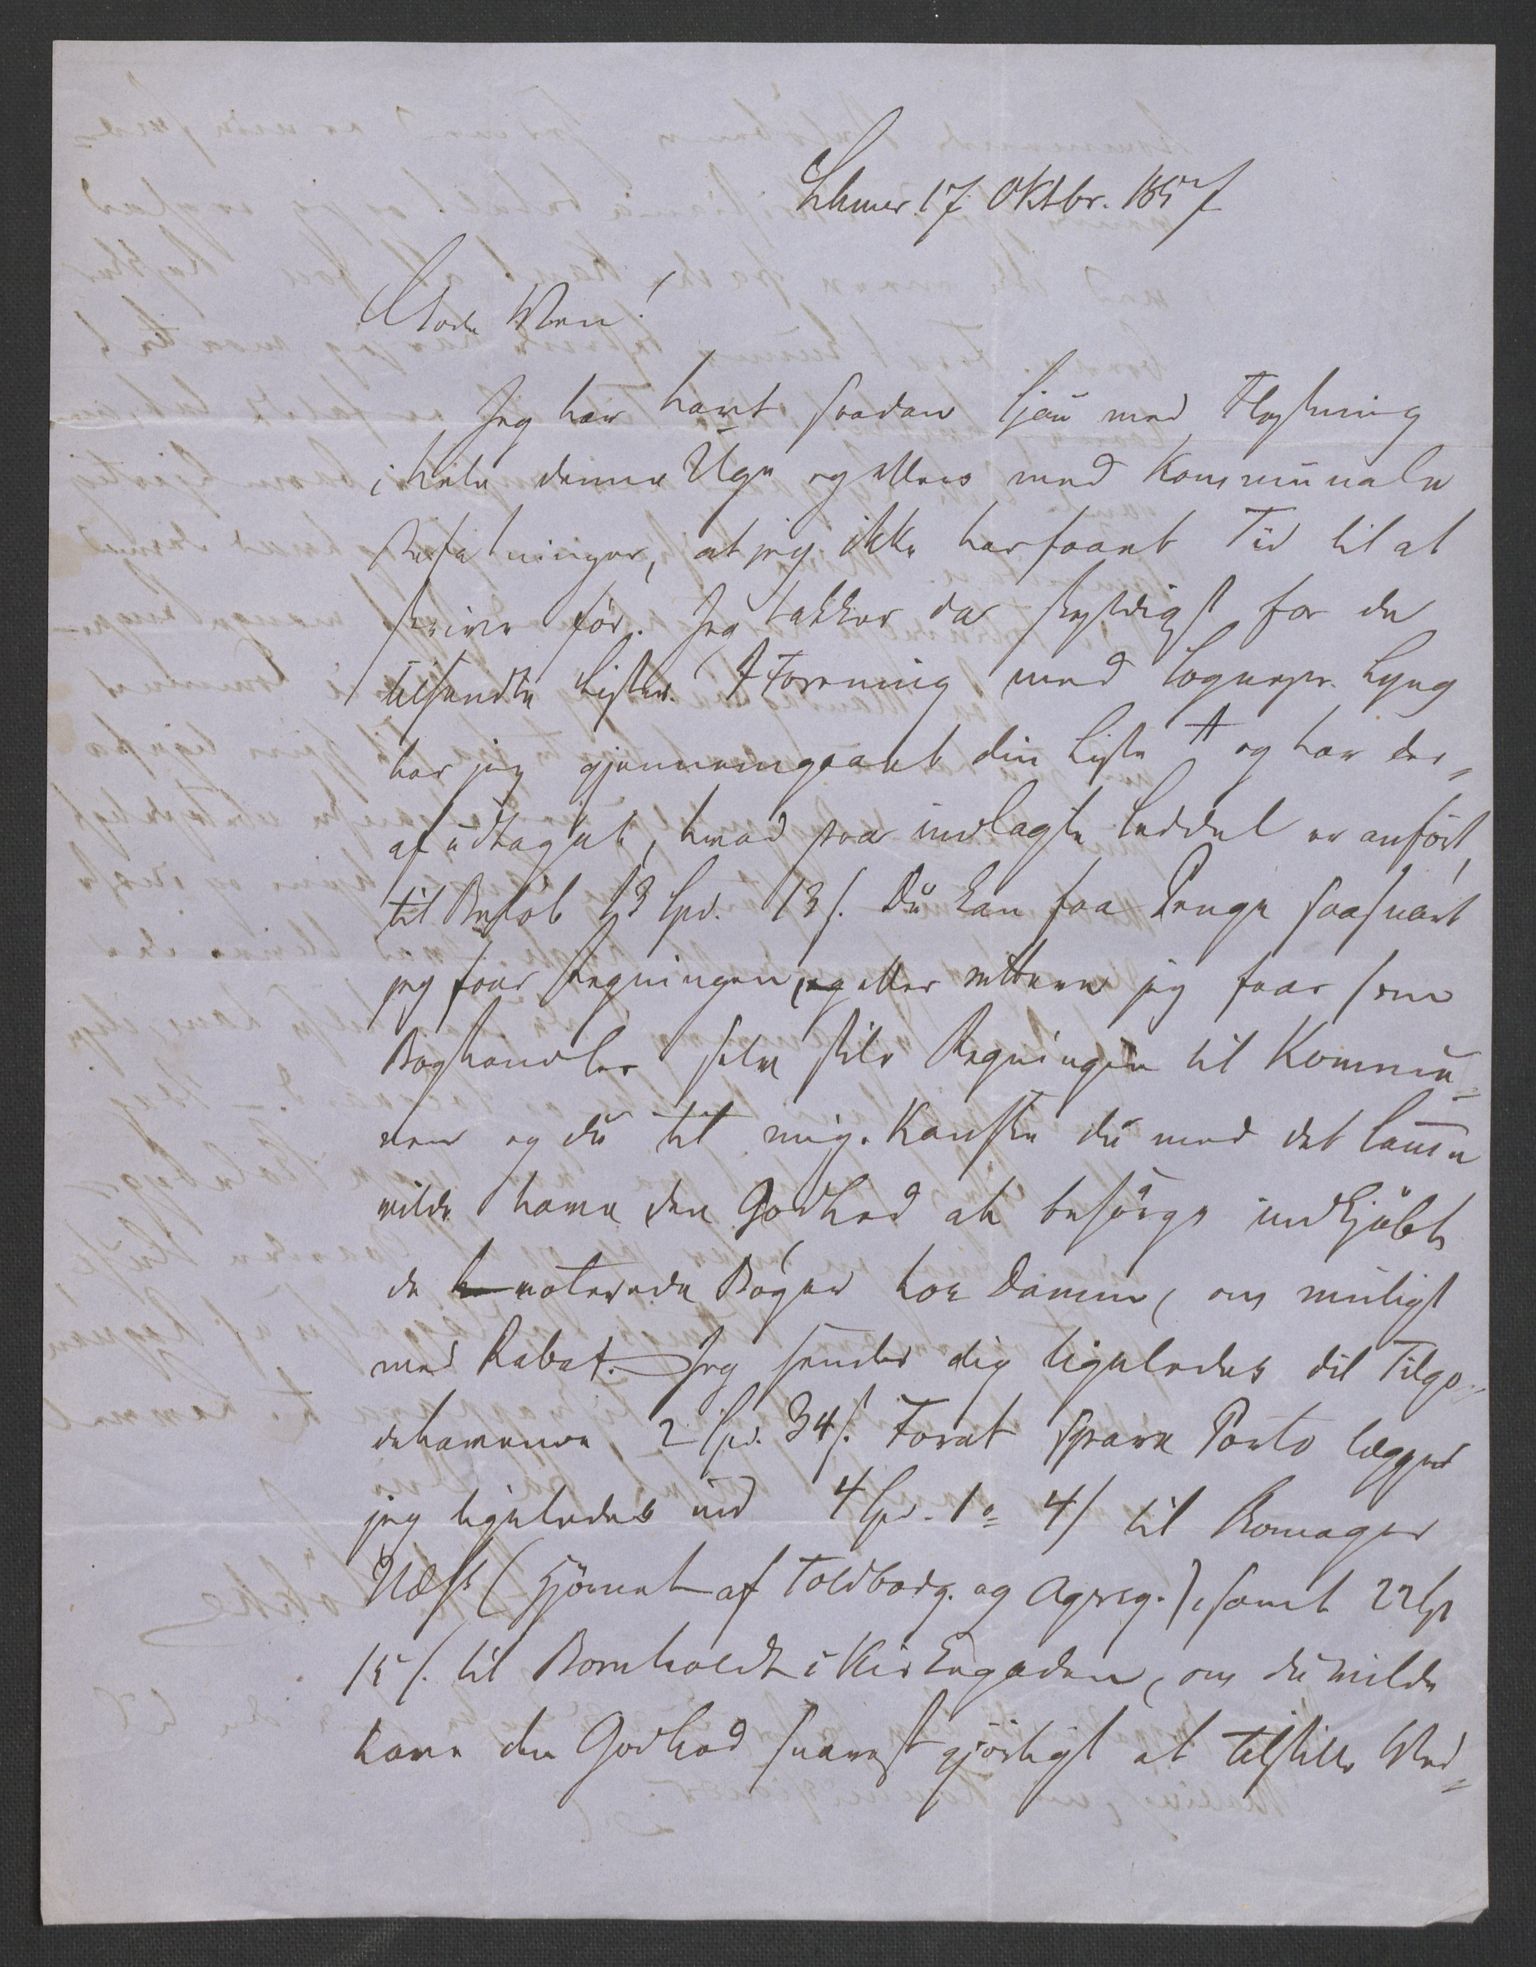 Lhmer 17 Oktbr. 1857
Gode Ven!
Jeg har havt saadan Sjau med Flytning
i hele denne Uge og ellers med Kommunale
at jeg ikke har faaet Tid til at
skrive för. Jeg takker da skyldigst for de
tilsendte Lister. I Forening med Sognepr. Lyng
har jeg gjennemgaaet din Liste A og har der-
af udtaget, hvad paa indlagte Seddel er anfört,
til Belöb 13 Spd. 13 s. Du kan faa Penge saasnart
jeg faar Regningen, og eller rettere jeg faar som
Boghandler selv stile Regningen til Kommu-
nen og du til mig. Kanske du med det samme
vilde have den Godhed at besörge indkjöbt
de noterede Böger hos Damm, om muligt
med Rabat. Jeg sender dig ligeledes dit Tilgo-
dehavende 2 Spd. 34 s. Forat spare Porto lægger
jeg ligeledes ind 4 Spd. 1 o 4 s til
Næss (Hjörnet af Toldbodg. og Agersg.), samt 22 Sp
15 s. til Bomholdt i Kirkegaden, om du vilde
have den Godhed snarest gjörligt at tilstille Ved-